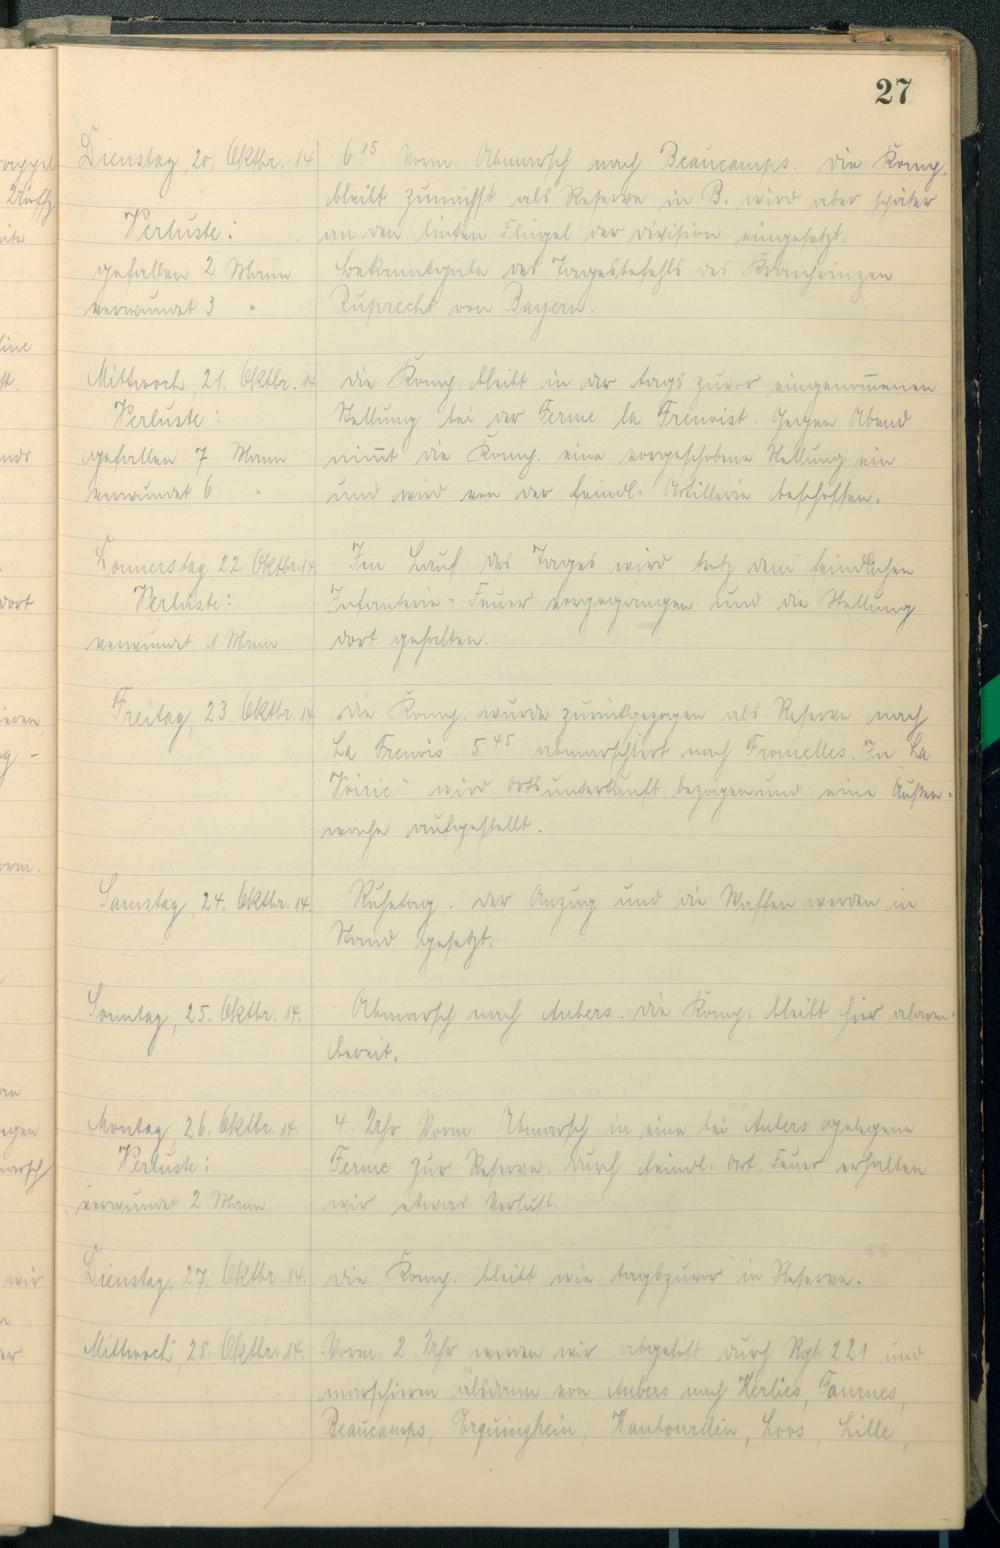 27
Dienstag, 20. Oktbr. 14
6 15 Vorm. Abmarsch nach Beaucamps. Die Komp.
bleibt zunächst als Reserve in B. wird aber später
Verluste:
an den linken Flügel der Division eingesetzt.
gefallen 2 Mann
Bekanntgabe des Tagesbefehls des Kronprinzen
verwundet 3 "
Ruprecht von Bayern.
Mittwoch, 21. Oktbr. 14
Die Komp. bleibt in der tags zuvor eingenom̅enen
Verluste:
Stellung bei der Ferme la Frenoist. Gegen Abend
gefallen 7 Mann
nim̅t die Komp. eine vorgeschobene Stellung ein
verwundet 6 "
und wird von der feindl. Artillerie beschossen.
Donnerstag 22. Oktbr. 14.
Im Lauf des Tages wird trotz dem feindlichen
Verluste:
Infanterie-Feuer vorgegangen und die Stellung
verwundet 1 Mann
dort gehalten.
Freitag, 23. Oktbr. 14
Die Komp. wurde zurückgezogen als Reserve nach
La Frenois. 5 45 abmarschiert nach Fromelles. In "La
Voirie" wird Ortsunterkunft bezogen und eine Außen-
wache aufgestellt.
Samstag, 24. Oktbr. 14.
Ruhetag. Der Anzug und die Waffen werden in
Stand gesetzt.
Sonntag, 25. Oktbr. 14.
Abmarsch nach Aubers. Die Komp. bleibt hier alarm-
bereit.
Montag, 26. Oktbr. 14.
4 Uhr Vorm. Abmarsch in eine bei Aubers gelegene
Verluste:
Ferme zur Reserve. Durch feindl. Art. Feuer erhalten
verwundet 2 Mann
wir etwas Verlust.
Dienstag, 27. Oktbr. 14.
Die Komp. bleibt wie tagszuvor in Reserve.
Mittwoch, 28. Oktbr. 14.
Vorm. 2 Uhr werden wir abgelöst durch Rgt 221 und
marschieren alsdann von Aubers nach Herlies, Fournes,
Beaucamps, Erquinghein, Haubourdin, Loos, Lille,